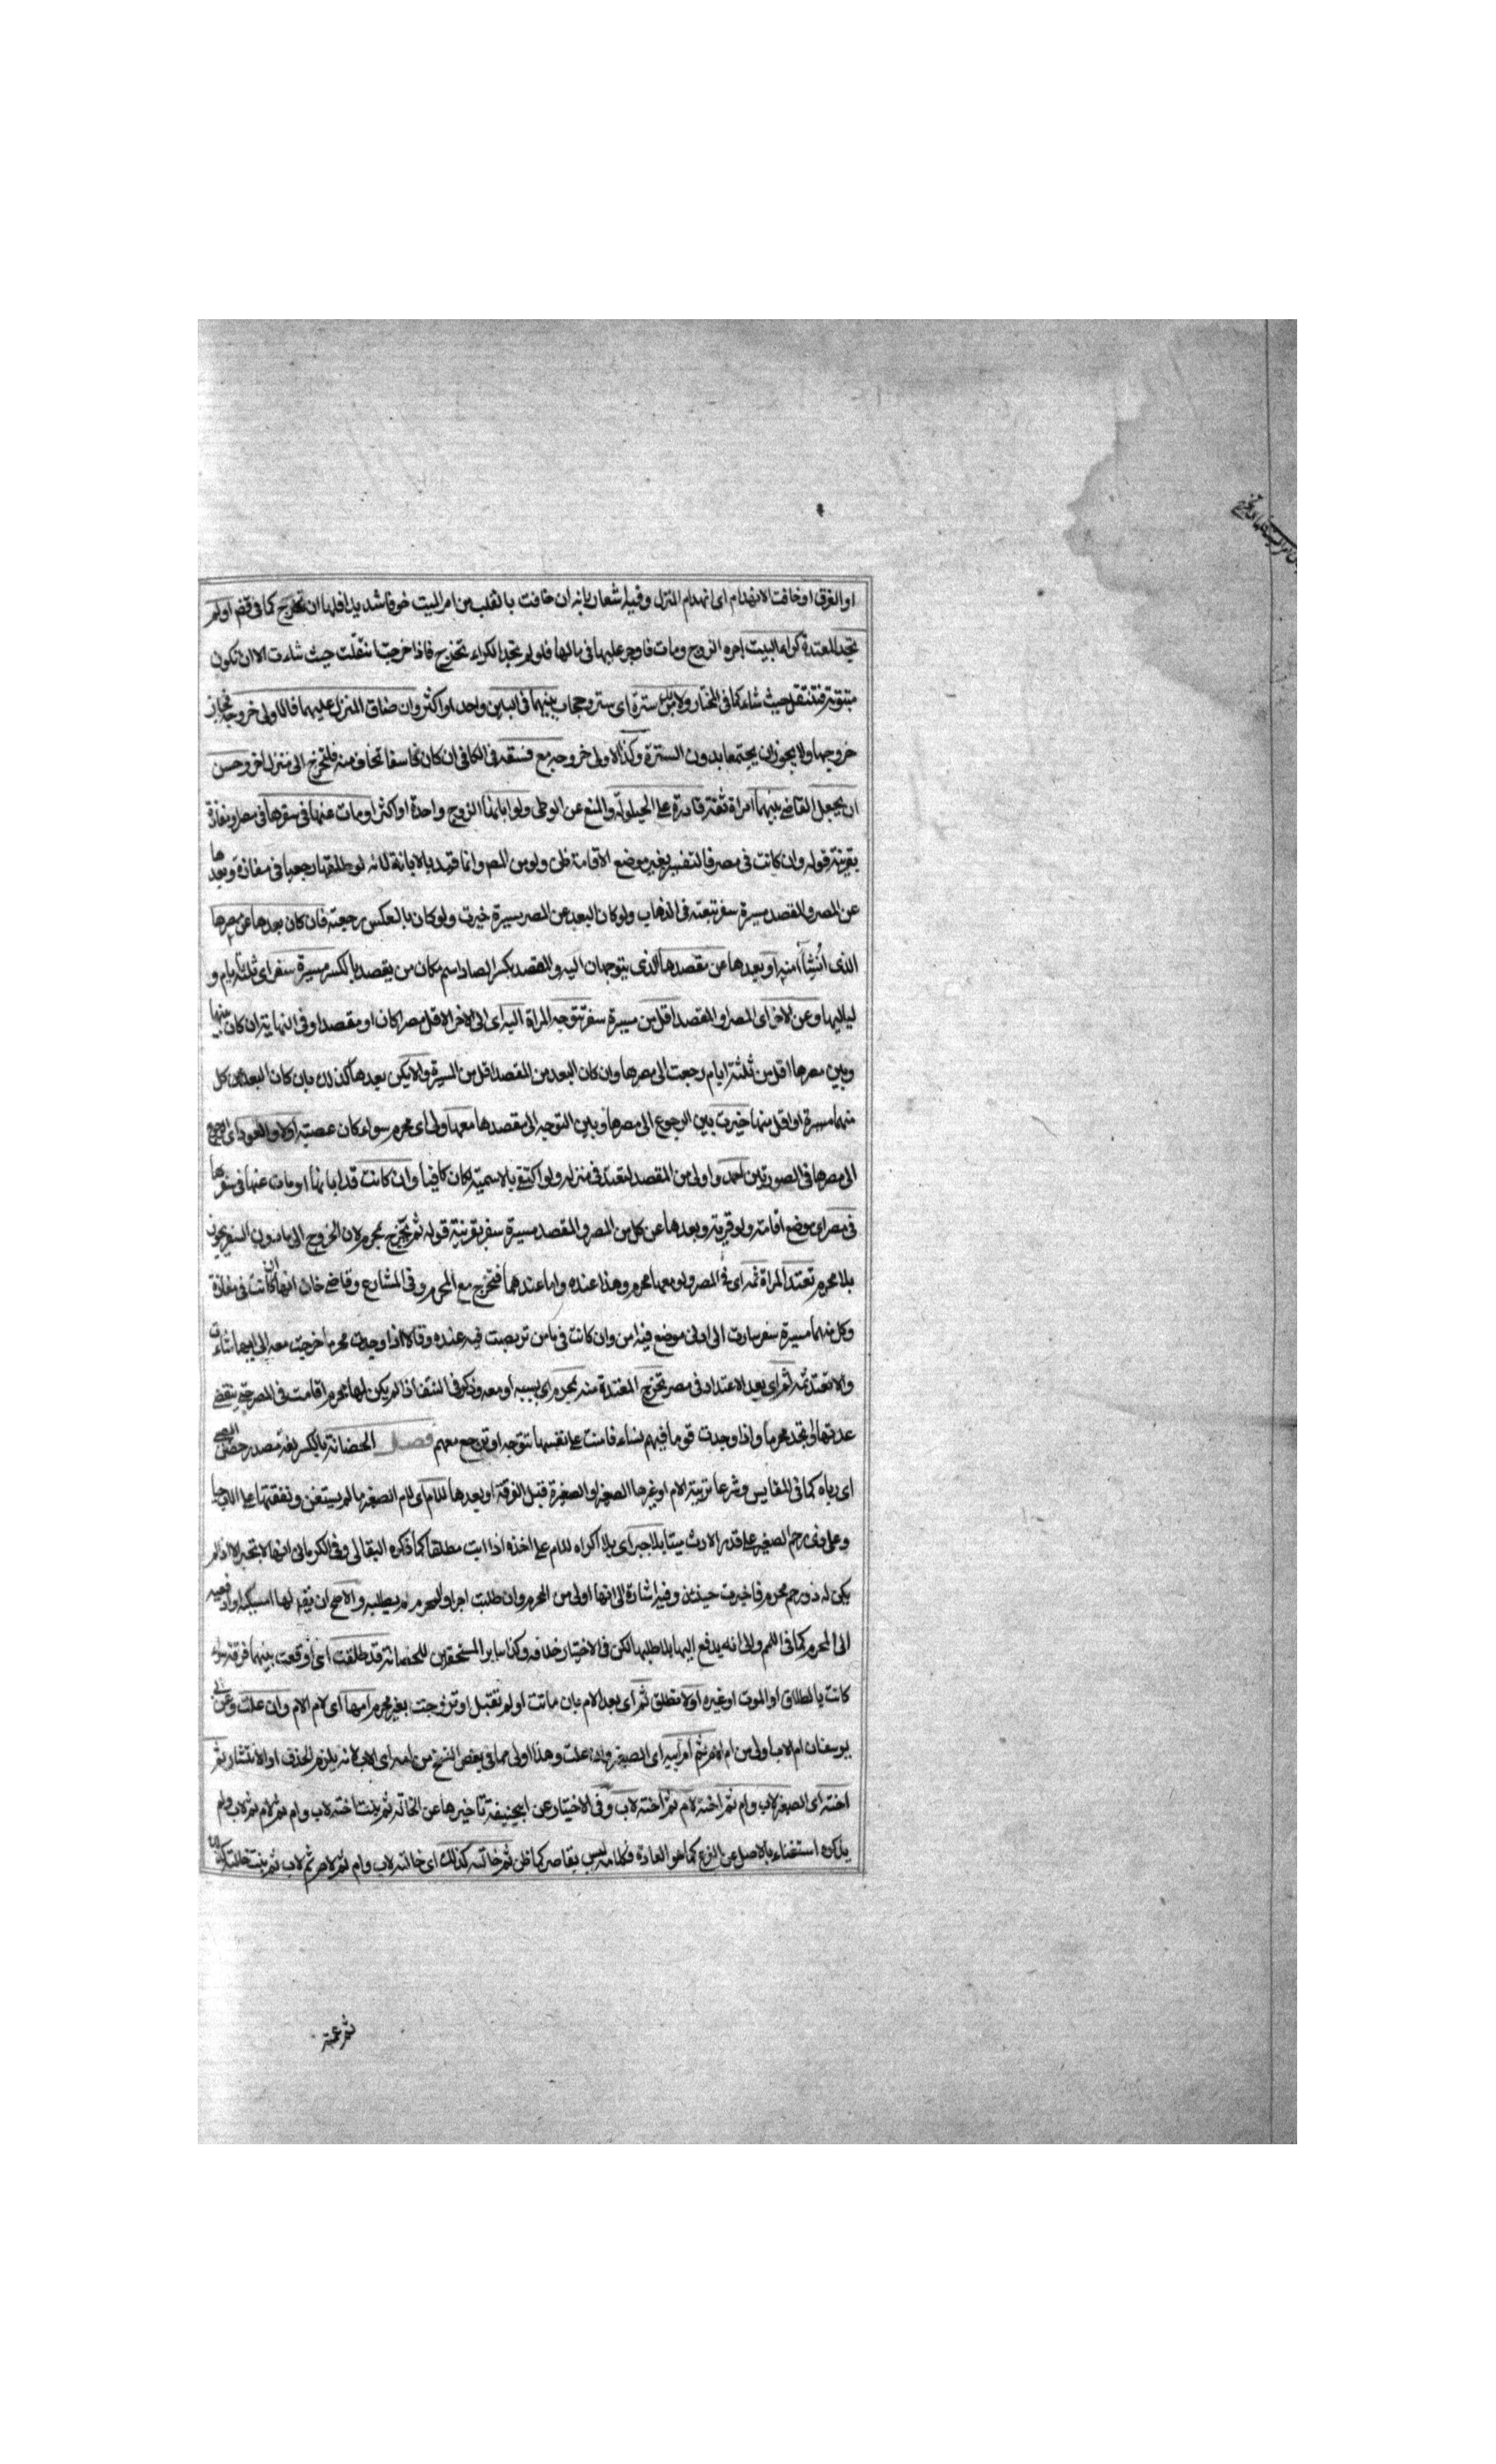 او الغرق او خافت الانهدام اى انهدام المنزل وفيه اشعار بانه ان خافت بالقلب من امر البيت خوفا شديدا فلها ان تخرج كما فى او لم
تجد المعتدة كراء البيت اجره الزوج ومات فاوجر عليها فى مالها فلو لم تجد الكراء تخرج فاذا خرجت انتقلت حيث شاءت الا ان تكون
مبتوتة فتنتقل حيث شاء كما فى المختار ولا بد من سترة اى ستر وحجاب بينهما فى الباين واحدا او اكثر وان ضاق المنزل عليهما فالاولى خروجه فجاز
خروجها ولا يجوز ان يجتمعا بدون السترة وكذا الاولى خروجه مع فسقه فى الكافى ان كان فاسقا تخاف منه فلتخرج الى منزل اخر وحسن
ان يجعل القاضى بينهما امراة ثقة قادرة على الحيلولة والمنع عن الوطى ولو ابانها الزوج واحدة او اكثر او مات عنها فى سفرها فى مصر او مفازة
بقرينة قوله وان كانت فى مصر فالتفسير بغير موضع الاقامة ظن ولو من المص وانما قيد بالابانة لانه لو طلقها رجعيا فى مفازة وبعدها
عن المصر والمقصد مسيرة سفر تبعته فى الذهاب ولو كان البعد عن المصر مسيرة خيرت ولو كان بالعكس رجعت فان كان بعدها عن مصرها
الذى انشئا منه او بعدها عن مقصدها الذى يتوجهان اليه والمقصد بكسر الصاد اسم مكان من يقصد بالكسر مسيرة سفر اى ثلثة ايام و
لياليها وعن الاخر اى المصر او المقصد اقل من مسيرة سفر تتوجه المراة اليه اى الى الاخر الاقل مصرا كان او مقصدا وفى النهاية ان كان بينها
وبين مصرها اقل من ثلثة ايام رجعت الى مصرها وان كان البعد من المقصد اقل من المسيرة والا يكن بعدها كذلك بان كان البعد عن كل
منهما مسيرة او اقل منها خيرت بين الرجوع الى مصرها وبين التوجه الى مقصدها معها ولى اى محرم سواء كان عصبة اولا والعود اى الرجوع
الى مصرها فى الصورتين احمد واولى من المقصد لتعتد فى منزله ولو اكتفى بالاسمية لكان كافيا وان كانت قد ابانها او مات عنها فى سفرها
فى مصر اى موضع اقامة ولو قرية وبعدها عن كل من المصر والمقصد مسيرة سفر بقرينة قوله ثم تخرج بمحرم لان الخروج الى ما دون السفر يجوز
بلا محرم تعتد المراة ثمه اى فى المصر ولو معها محرم وهذا عنده واما عندهما فتخرج مع المحرم وفى المشارع وقاضى خان انها ان كانت فى مفازة
وكل منهما مسيرة سفر سارت الى ادنى موضع فيه امن وان كانت فى مامن تربصت فيه عنده وقالا اذا وجدت محرما خرجت معه الى ايهما شاءت
والا تعتد ثمه ثم اى بعد الاعتداد فى مصر تخرج المعتدة منه بمحرم اى بسببه او معه وذكر فى النتف اذا لم يكن لها محرم اقامت فى المصر حتى ينقضى
عدتها او تجد محرما واذا وجدت قوما فيهم نساء فامنت على نفسها تتوجه او ترجع معهم فصل الحضانة بالكسر لغة مصدر حضن الصبى
اى رباه كما فى المقايس وشرعا تربية الام او غيرها الصغير او الصغيرة قبل الفرقة او بعدها للام اى لام الصغير ما لم يستغن ونفقتها على الاب حيا
وعلى ذى رحم الصغير على قدر الارث ميتا بلا جبر اى بلا اكراه للام على اخذه اذا ابت مطلقا كما ذكره البقالى وفى الكرمانى انها لا تجبر الا اذا لم
يكن له ذو رحم محرم فاجبرت حينئذ وفيه اشارة الى انها اولى من المحرم وان طلبت اجرا والمحرم لم يطلبه والاصح ان يقال لها امسكيه او ادفعيه
الى المحرم كما فى اللمم والى انه يدفع اليها بلا طلبها لكن فى الاختيار خلافه وكذا ساير المستحقين للحضانة قد طلقت اى اوقعت بينهما فرقة سواء
كانت بالطلاق او الموت او غيره اولا تطلق ثم اى بعد الام بان ماتت او لم تقبل او تزوجت بغير محرم امها اى لام الام وان علت وعن ابى
يوسف ان ام الاب اولى من ام الام ثم ام ابيه اى الصغير وان علت وهذا اولى مما فى بعض النسخ من امه اى الاب لانه يلزم الحذف او الانتشار ثم
اخته اى الصغير لاب وام ثم اخته لام ثم اخته لاب وفى الاختيار عن ابيحنيفة تاخيرها عن الخالة ثم بنت اخته لاب وام ثم لام ثم لاب ولم
يذكره استغناء بالاصل عن الفرع كما هو العادة فكلامه ليس بقاصر كما ظن ثم خالته كذلك اى خالته لاب وام ثم لام ثم لاب ثم بنت خالته
ثم عمته